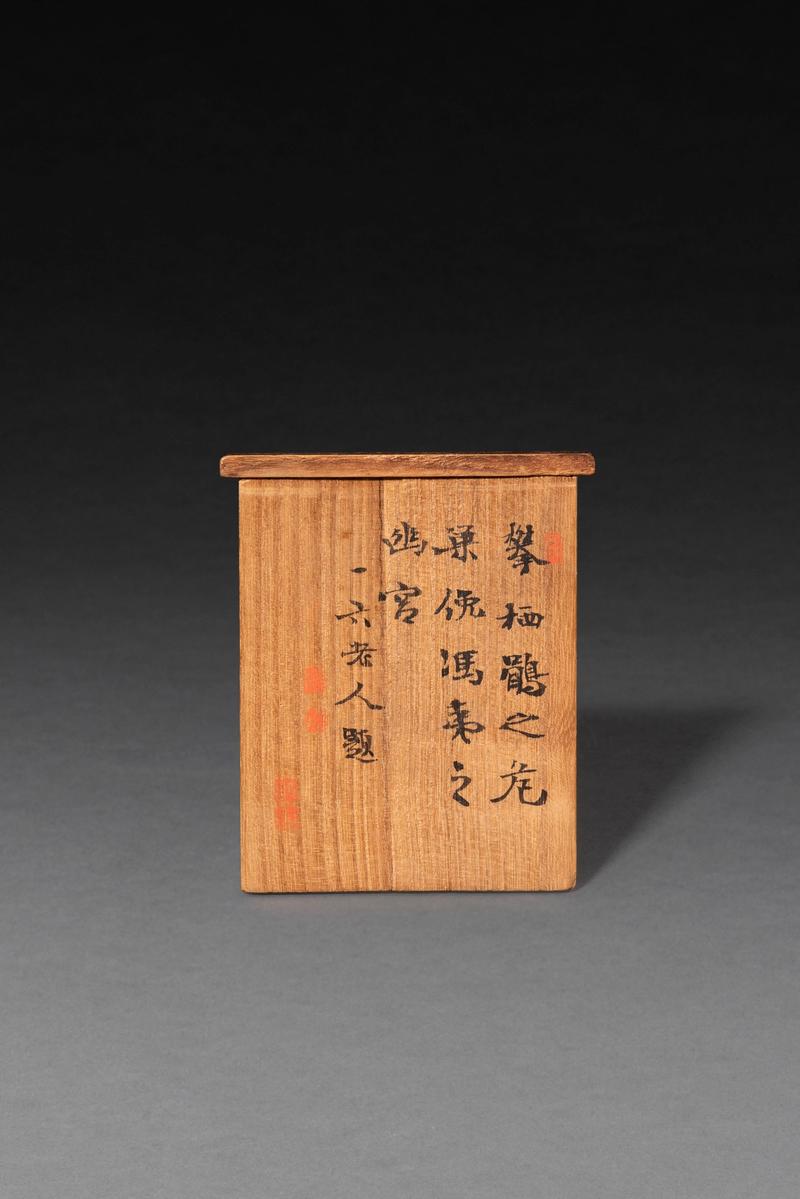 攀栖鶻之危
巣俛馮夷之
幽宮
一六老人題